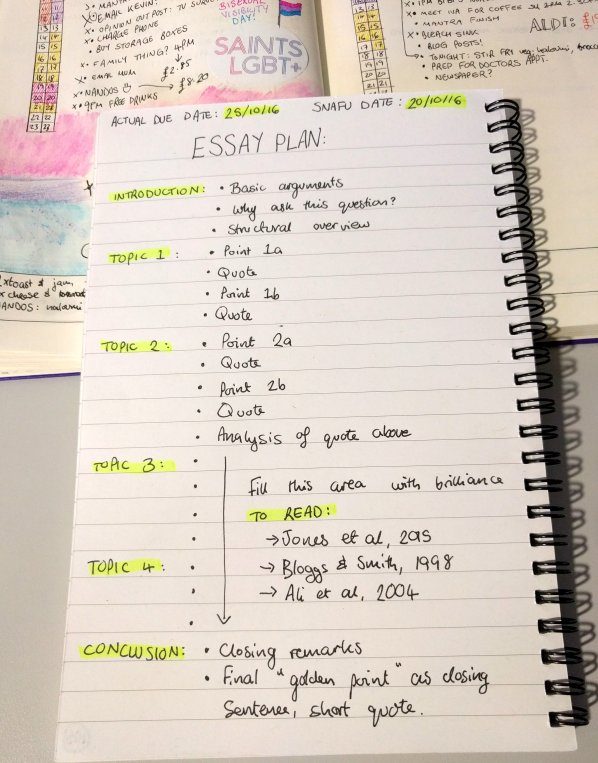 EMAIL KEVIN
OPINION OUT POST:
CHARGE PHONE
• BUY STORAGE BOXES
x • FAMILY THING? 4PM
£2.85
x • NANDOS
£8.20
x • 9PM FREE DRINKS
BISEXUAL
VISIBILITY
DAY!
SAINTS
LGBT+
12 12
13 13
14 14
15 15
16 16
17 17
18 18
19 19
20 20
21 21
22 22
23 23
x • MEET IVA FOR COFFEE
• MANTRA FINISH
x • BLEACH SINK
• BLOG POSTS!
TONIGHT: STIR FRY
• PREP FOR DOCTORS APPT.
• NEWSPAPER?
ALDI:
2xtoast & jam
cheese &
NANDOS:
ACTUAL DUE DATE: 25/10/16 SNAFU DATE: 20/10/16
ESSAY PLAN:
INTRODUCTION: • Basic arguments
• Why ask this question?
• Structural overview
TOPIC 1: • Point 1a
• Quote
• Point 1b
• Quote
TOPIC 2: • Point 2a
• Quote
• Point 2b
• Quote
• Analysis of quote above
TOPIC 3:
Fill this area with brilliance
TO READ:
→ Jones et al, 2015
TOPIC 4: → Bloggs & Smith, 1998
→ Ali et al, 2004
CONCLUSION: • Closing remarks
• Final "golden point" as closing
Sentence, short quote.